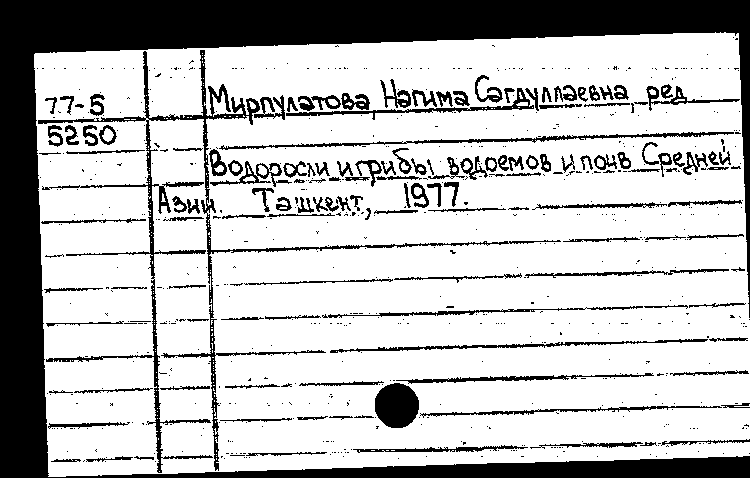 77-5 Мирпулатова, Нагима Сагдуллаевна, ред.
5250
Водоросли и грибы водоемов и почв Средней
Азии. Ташкент, 1977.